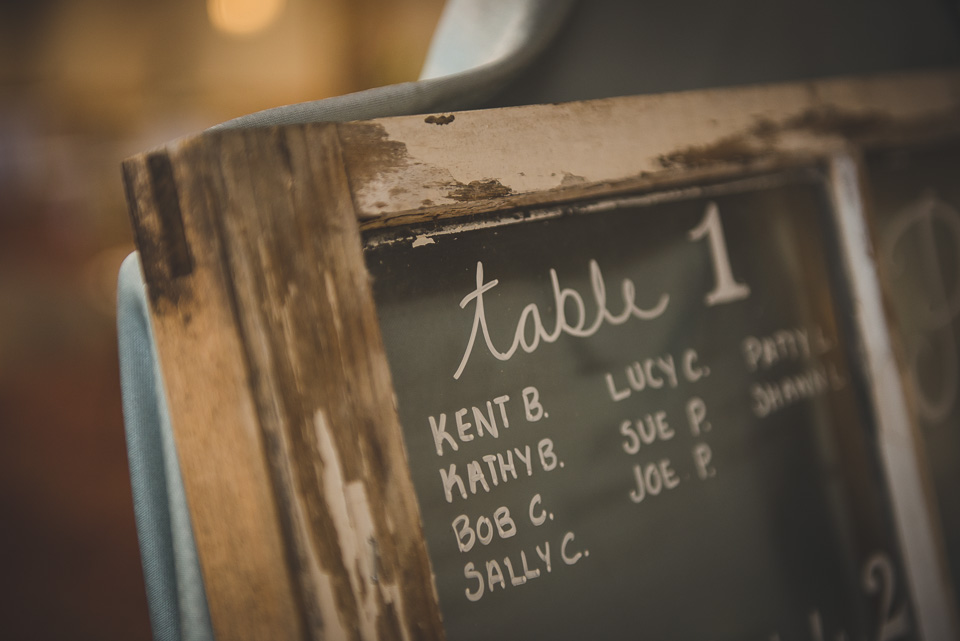 table 1
KENT B.
KATHY B.
BOB C.
SALLY C.
LUCY C.
SUE P.
JOE P.
PATTY L
SHAWN L
2